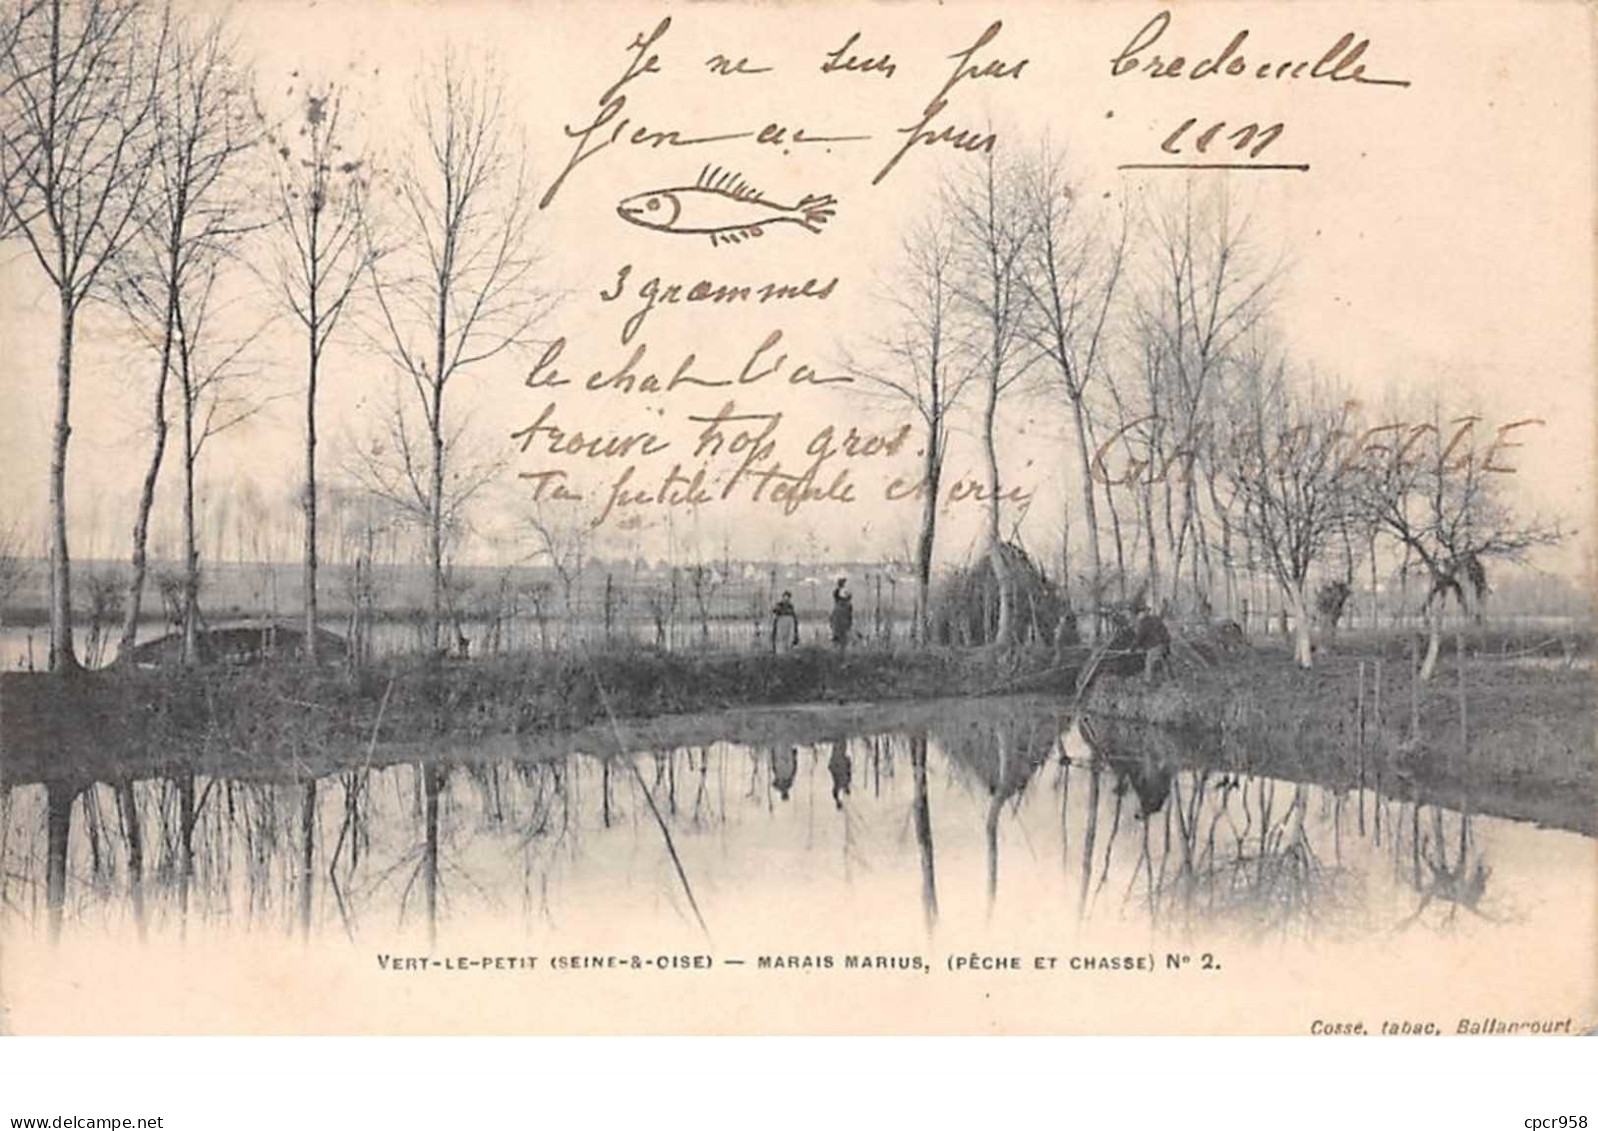 Je ne suis pas bredouille
j'en ai pris un
3 grammes
le chat l'a
trouvé trop gros.
Ta petite toute chérie
GABRIELLE
VERT-LE-PETIT (SEINE-&-OISE) — MARAIS MARIUS, (PÊCHE ET CHASSE) N° 2.
Cosse, tabac, Ballancourt
delcampe.net
cpcr958